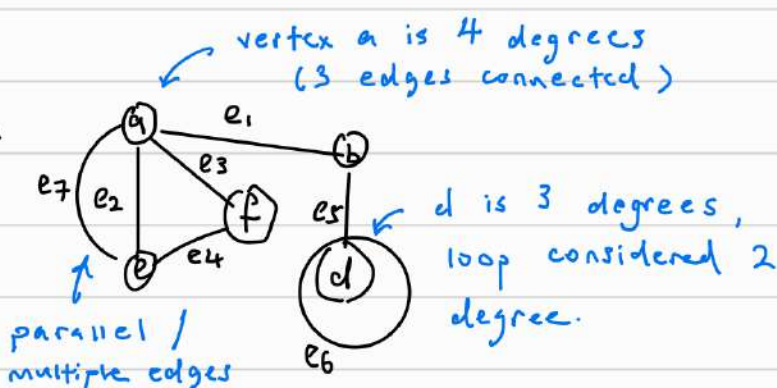 vertex a is 4 degrees
(3 edges connected)
a
e1
b
e3
e7
e2
f
e5
d is 3 degrees,
e4
e
d
loop considered 2
degree.
parallel /
multiple edges
e6